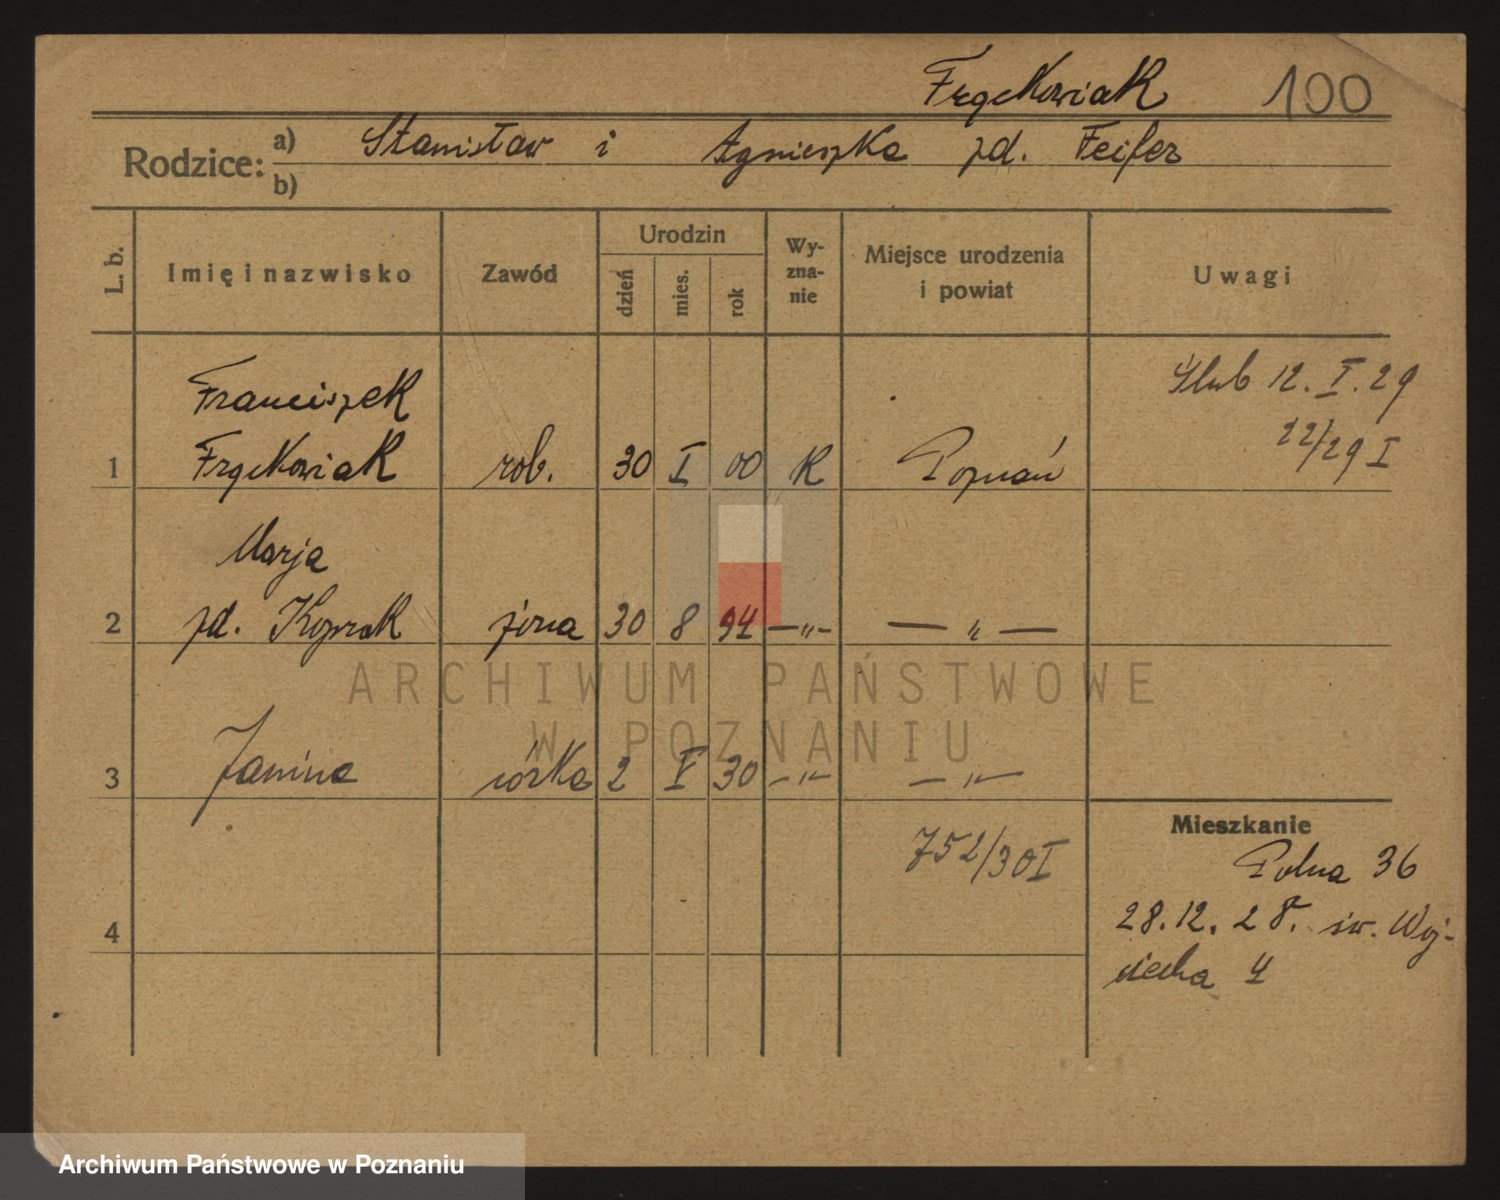 Frąckowiak 100
Rodzice: a) Stanisław i Agnieszka zd. Feifer
b)
L. b. Imię i nazwisko Zawód Urodzin dzień mies. rok Wyzna-nie Miejsce urodzenia i powiat Uwagi
Franciszek Ślub 12. I. 29
1 Frąckowiak rob. 30 I 00 K Poznań 22/29 I
Marja
2 zd. Koprak żona 30 8 94 —„— — „ —
ARCHIWUM PAŃSTWOWE
W POZNANIU
3 Janina córka 2 V 30 —„— — „ —
Mieszkanie
752/30 I Polna 36
4 28.12.28. św. Woj-
ciecha 4
Archiwum Państwowe w Poznaniu